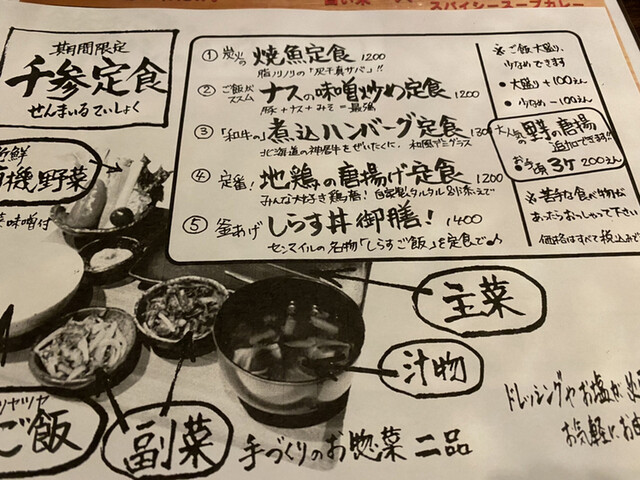 スパイシースープカレー
期間限定
千参定食
せんまいるていしょく
① 炭火の 焼魚定食 1200
脂ノリノリの「灰干真サバ」!!
② ご飯がススム ナスの味噌炒め定食 1200
豚+ナス+みそ=最強
③ 「和牛の」煮込ハンバーグ定食 1300
北海道の神居牛をぜいたくに、和風デミグラス
④ 定番! 地鶏の唐揚げ定食 1200
みんな大好き鶏唐! 自家製タルタル&ポン酢で
⑤ 釜あげ しらす丼御膳! 1400
センマイルの名物「しらすご飯」を定食で♪
※ご飯大盛り、
少なめできます
• 大盛り +100えん
• 少なめ -100えん
大人気の
唐揚
追加できます!!
3ケ 200えん
※苦手な食べ物が
あったらおっしゃって下さい
価格はすべて税込みで
新鮮
機野菜
菜味噌付
主菜
汁物
ツヤツヤ
ご飯
副菜
手づくりのお惣菜二品
ドレッシングやお塩が
お気軽にお